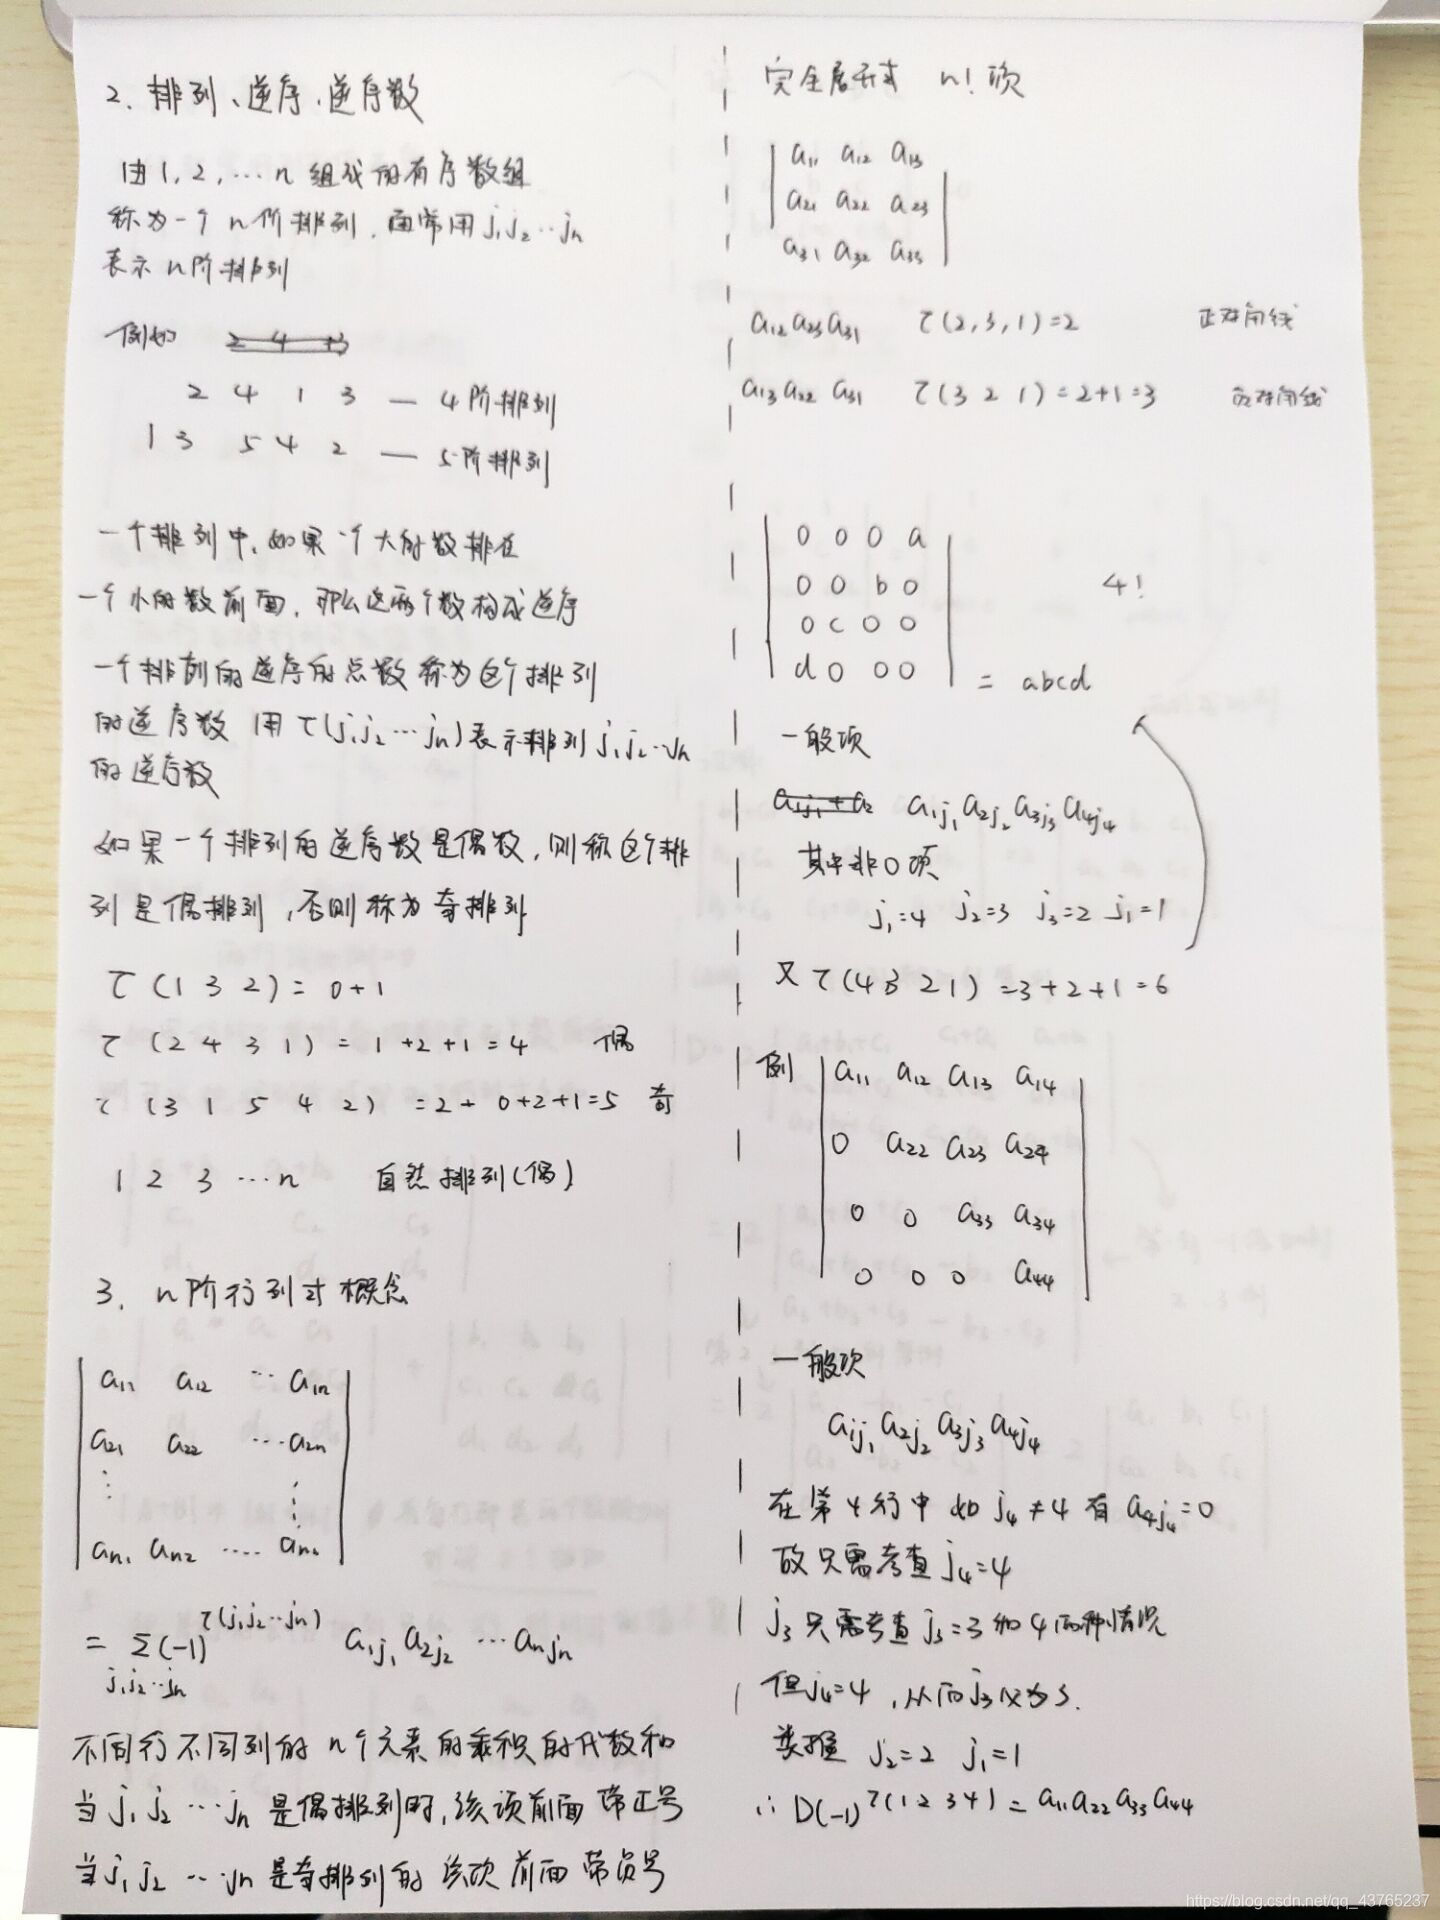 2. 排列、逆序、逆序数
由1,2,…n 组成的有序数组
称为一个 n阶排列.通常用 j₁j₂…jn
表示 n阶排列
例如
2 4 1 3 — 4阶排列
1 3 5 4 2 — 5阶排列
一个排列中,如果一个大的数排在
一个小的数前面,那么这两个数构成逆序
一个排列的逆序的总数称为这个排列
的逆序数 用 τ(j₁j₂…jn)表示排列 j₁j₂…jn
的逆序数
如果一个排列的逆序数是偶数,则称这个排
列是偶排列,否则称为奇排列
τ(1 3 2) = 0+1
τ(2 4 3 1) = 1+2+1=4 偶
τ(3 1 5 4 2) = 2+0+2+1=5 奇
1 2 3 …n 自然排列(偶)
3. n阶行列式概念
a₁₁ a₁₂ … a₁n
a₂₁ a₂₂ … a₂n
⋮ ⋮
an₁ an₂ …. ann
= Σ(-1)^τ(j₁j₂…jn) a₁j₁ a₂j₂ … anjn
j₁j₂…jn
不同行不同列的 n个元素的乘积的代数和
当 j₁j₂…jn 是偶排列时,该项前面带正号
当 j₁j₂…jn 是奇排列时 该项前面带负号
完全展开式 n! 项
a₁₁ a₁₂ a₁₃
a₂₁ a₂₂ a₂₃
a₃₁ a₃₂ a₃₃
a₁₂a₂₃a₃₁ τ(2,3,1)=2 正对角线
a₁₃a₂₂a₃₁ τ(3 2 1)=2+1=3 负对角线
0 0 0 a
0 0 b 0 4!
0 c 0 0
d 0 0 0 = abcd
一般项
a₁j₁+a₂ a₁j₁a₂j₂a₃j₃a₄j₄
其中非0项
j₁=4 j₂=3 j₃=2 j₁=1
又 τ(4 3 2 1) =3+2+1=6
例 a₁₁ a₁₂ a₁₃ a₁₄
0 a₂₂ a₂₃ a₂₄
0 0 a₃₃ a₃₄
0 0 0 a₄₄
一般项
a₁j₁a₂j₂a₃j₃a₄j₄
在第4行中 如 j₄≠4 有 a₄j₄=0
故只需考查 j₄=4
j₃只需考查 j₃=3和4两种情况
但j₄=4,从而j₃仅为3.
类推 j₂=2 j₁=1
∴ D(-1)^τ(1 2 3 4) = a₁₁a₂₂a₃₃a₄₄
https://blog.csdn.net/qq_43765237